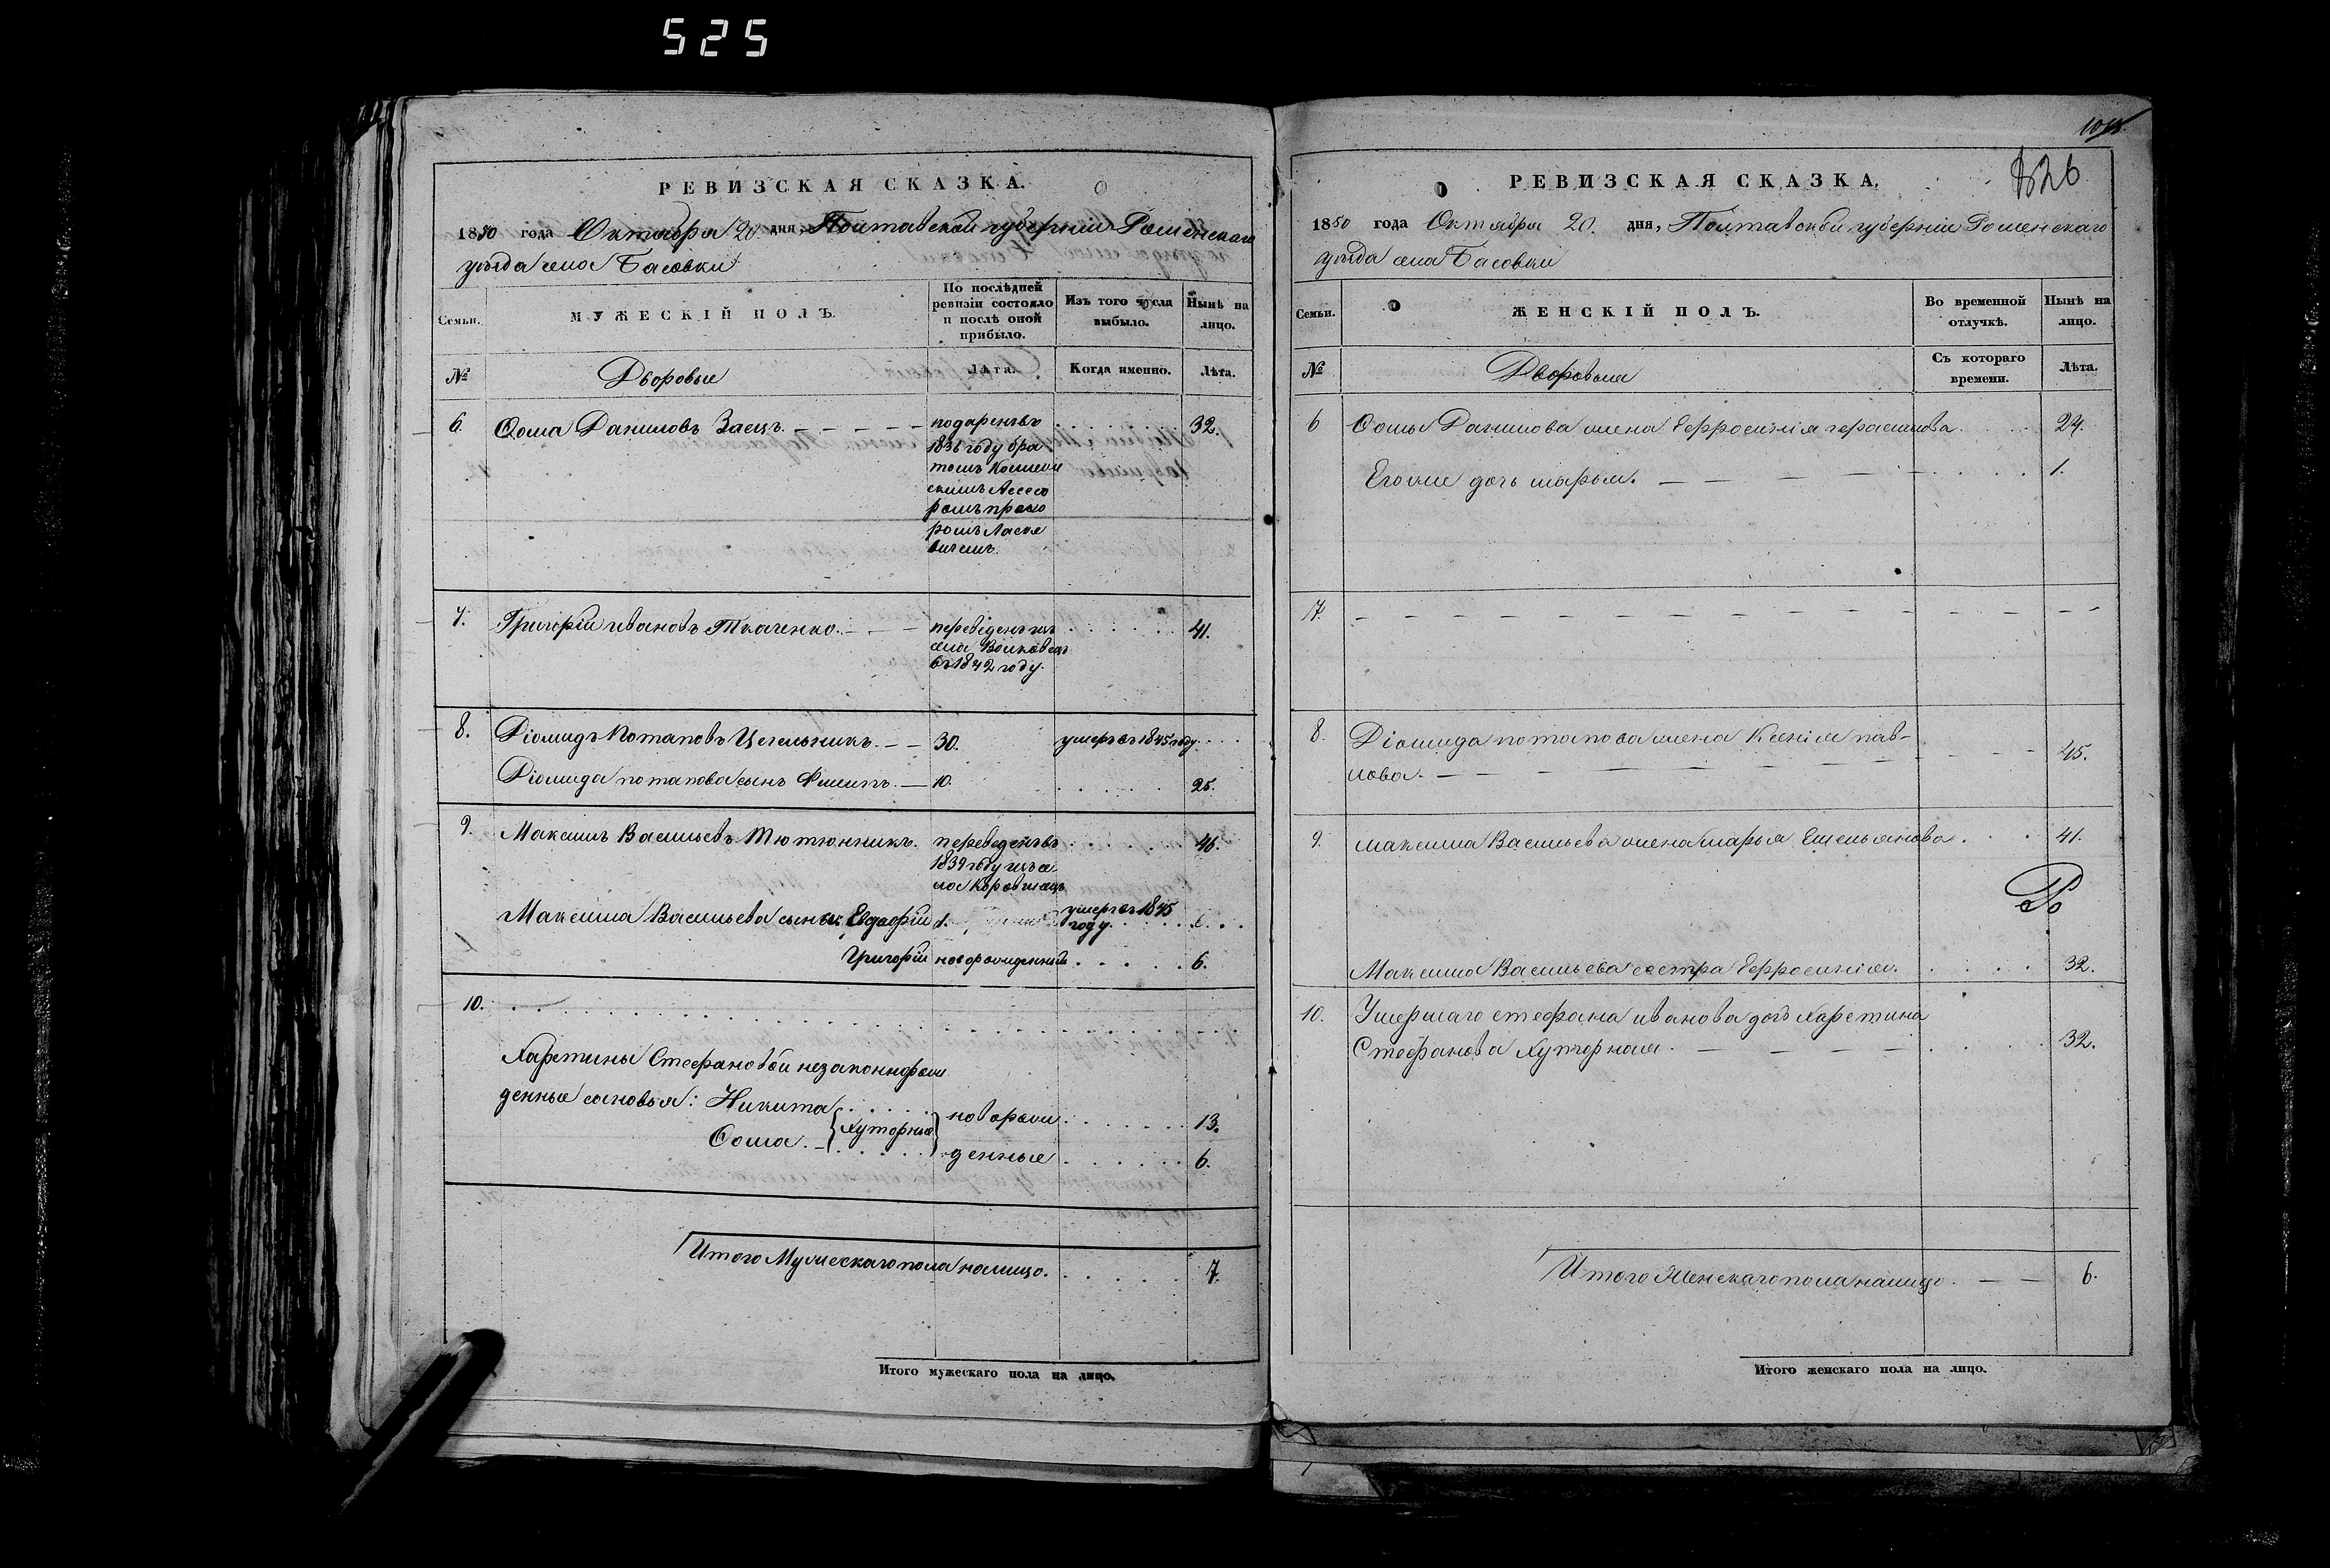 525
РЕВИЗСКАЯ СКАЗКА.
1850 года Октября 20 дня, Полтавской губерніи Роменскаго
уѣзда села Басовки
Семьи.
МУЖЕСКІЙ ПОЛЪ.
По послѣдней
ревизіи состояло
и послѣ оной
прибыло.
Изъ того числа
выбыло.
Нынѣ на
лицо.
№
Дворовые
Лѣта.
Когда именно.
Лѣта.
6. Ѳома Даниловъ Заецъ. подаренъ въ 32.
1836 году бра
томъ Коллеж
скимъ Ассесо
ромъ
ромъ Ласке
вичемъ.
7. Григорій ивановъ Ткаченко. переведенъ изъ 41.
села Волковецъ
въ 1842 году.
8. Діомидъ Потаповъ Цегельникъ. 30. умеръ въ 1845 году
Діомида потапова сынъ Филипъ. 10. 25.
9. Максимъ Васильевъ Тютюнникъ. переведенъ въ 46.
1839 году изъ се
ла Коровинецъ
Максима Васильева сыны: 1. умеръ въ 1845
году.
Григорій новорожденный 6.
10.
Харетины Стефановой незаконнорож
денные сыновья: Никита новорож 13.
Хуторные
Ѳома. денные 6.
Итого Мужескаго пола налицо. 7.
Итого мужескаго пола на лицо.
826
РЕВИЗСКАЯ СКАЗКА.
1850 года Октября 20. дня, Полтавской губерніи Роменскаго
уѣзда села Басовки
Семьи.
ЖЕНСКІЙ ПОЛЪ.
Во временной
отлучкѣ.
Нынѣ на
лицо.
№
Дворовые
Съ котораго
времени.
Лѣта.
6 Ѳомы Данилова жена Ефросинія герасимова. 24.
Его же дочь марья. 1.
7.
8. Діомида потапова жена Ксенія пав-
лова. 45.
9. максима Васильева жена марья Емельянова. 41.
Максима Васильева сестра Ефросинія. 32.
10. Умершаго стефана иванова дочь Харетина
Стефанова Хуторная. 32.
Итого Женскаго пола налицо. 6.
Итого женскаго пола на лицо.